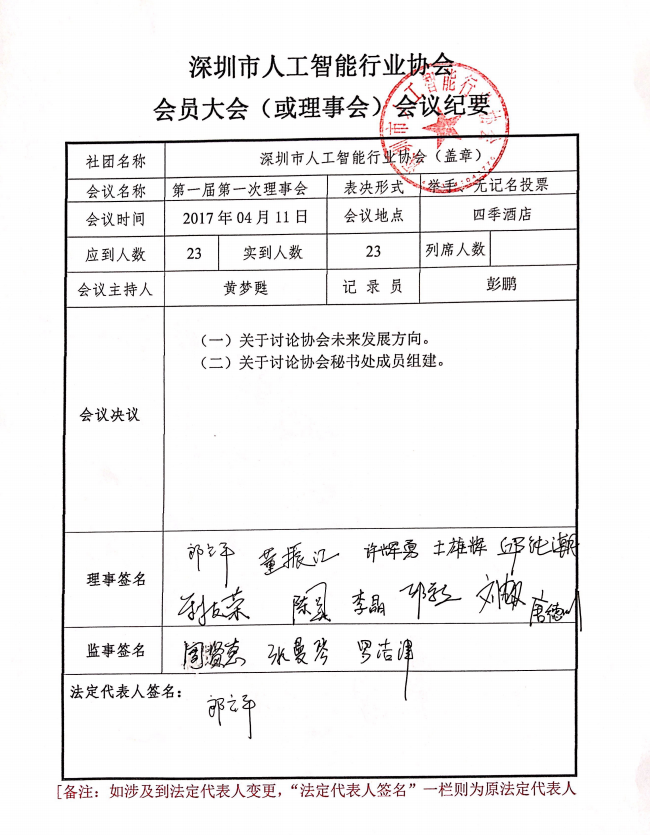 深圳市人工智能行业协会
会员大会（或理事会）会议纪要
社团名称 深圳市人工智能行业协会（盖章）
会议名称 第一届第一次理事会 表决形式 举手、无记名投票
会议时间 2017年04月11日 会议地点 四季酒店
应到人数 23 实到人数 23 列席人数
会议主持人 黄梦甦 记录员 彭鹏
（一）关于讨论协会未来发展方向。
（二）关于讨论协会秘书处成员组建。
会议决议
理事签名 董振江 许辉勇 邱纯潮
李晶 唐德
监事签名 周贤志 张曼琴 罗洁津
法定代表人签名：
[备注：如涉及到法定代表人变更，“法定代表人签名”一栏则为原法定代表人